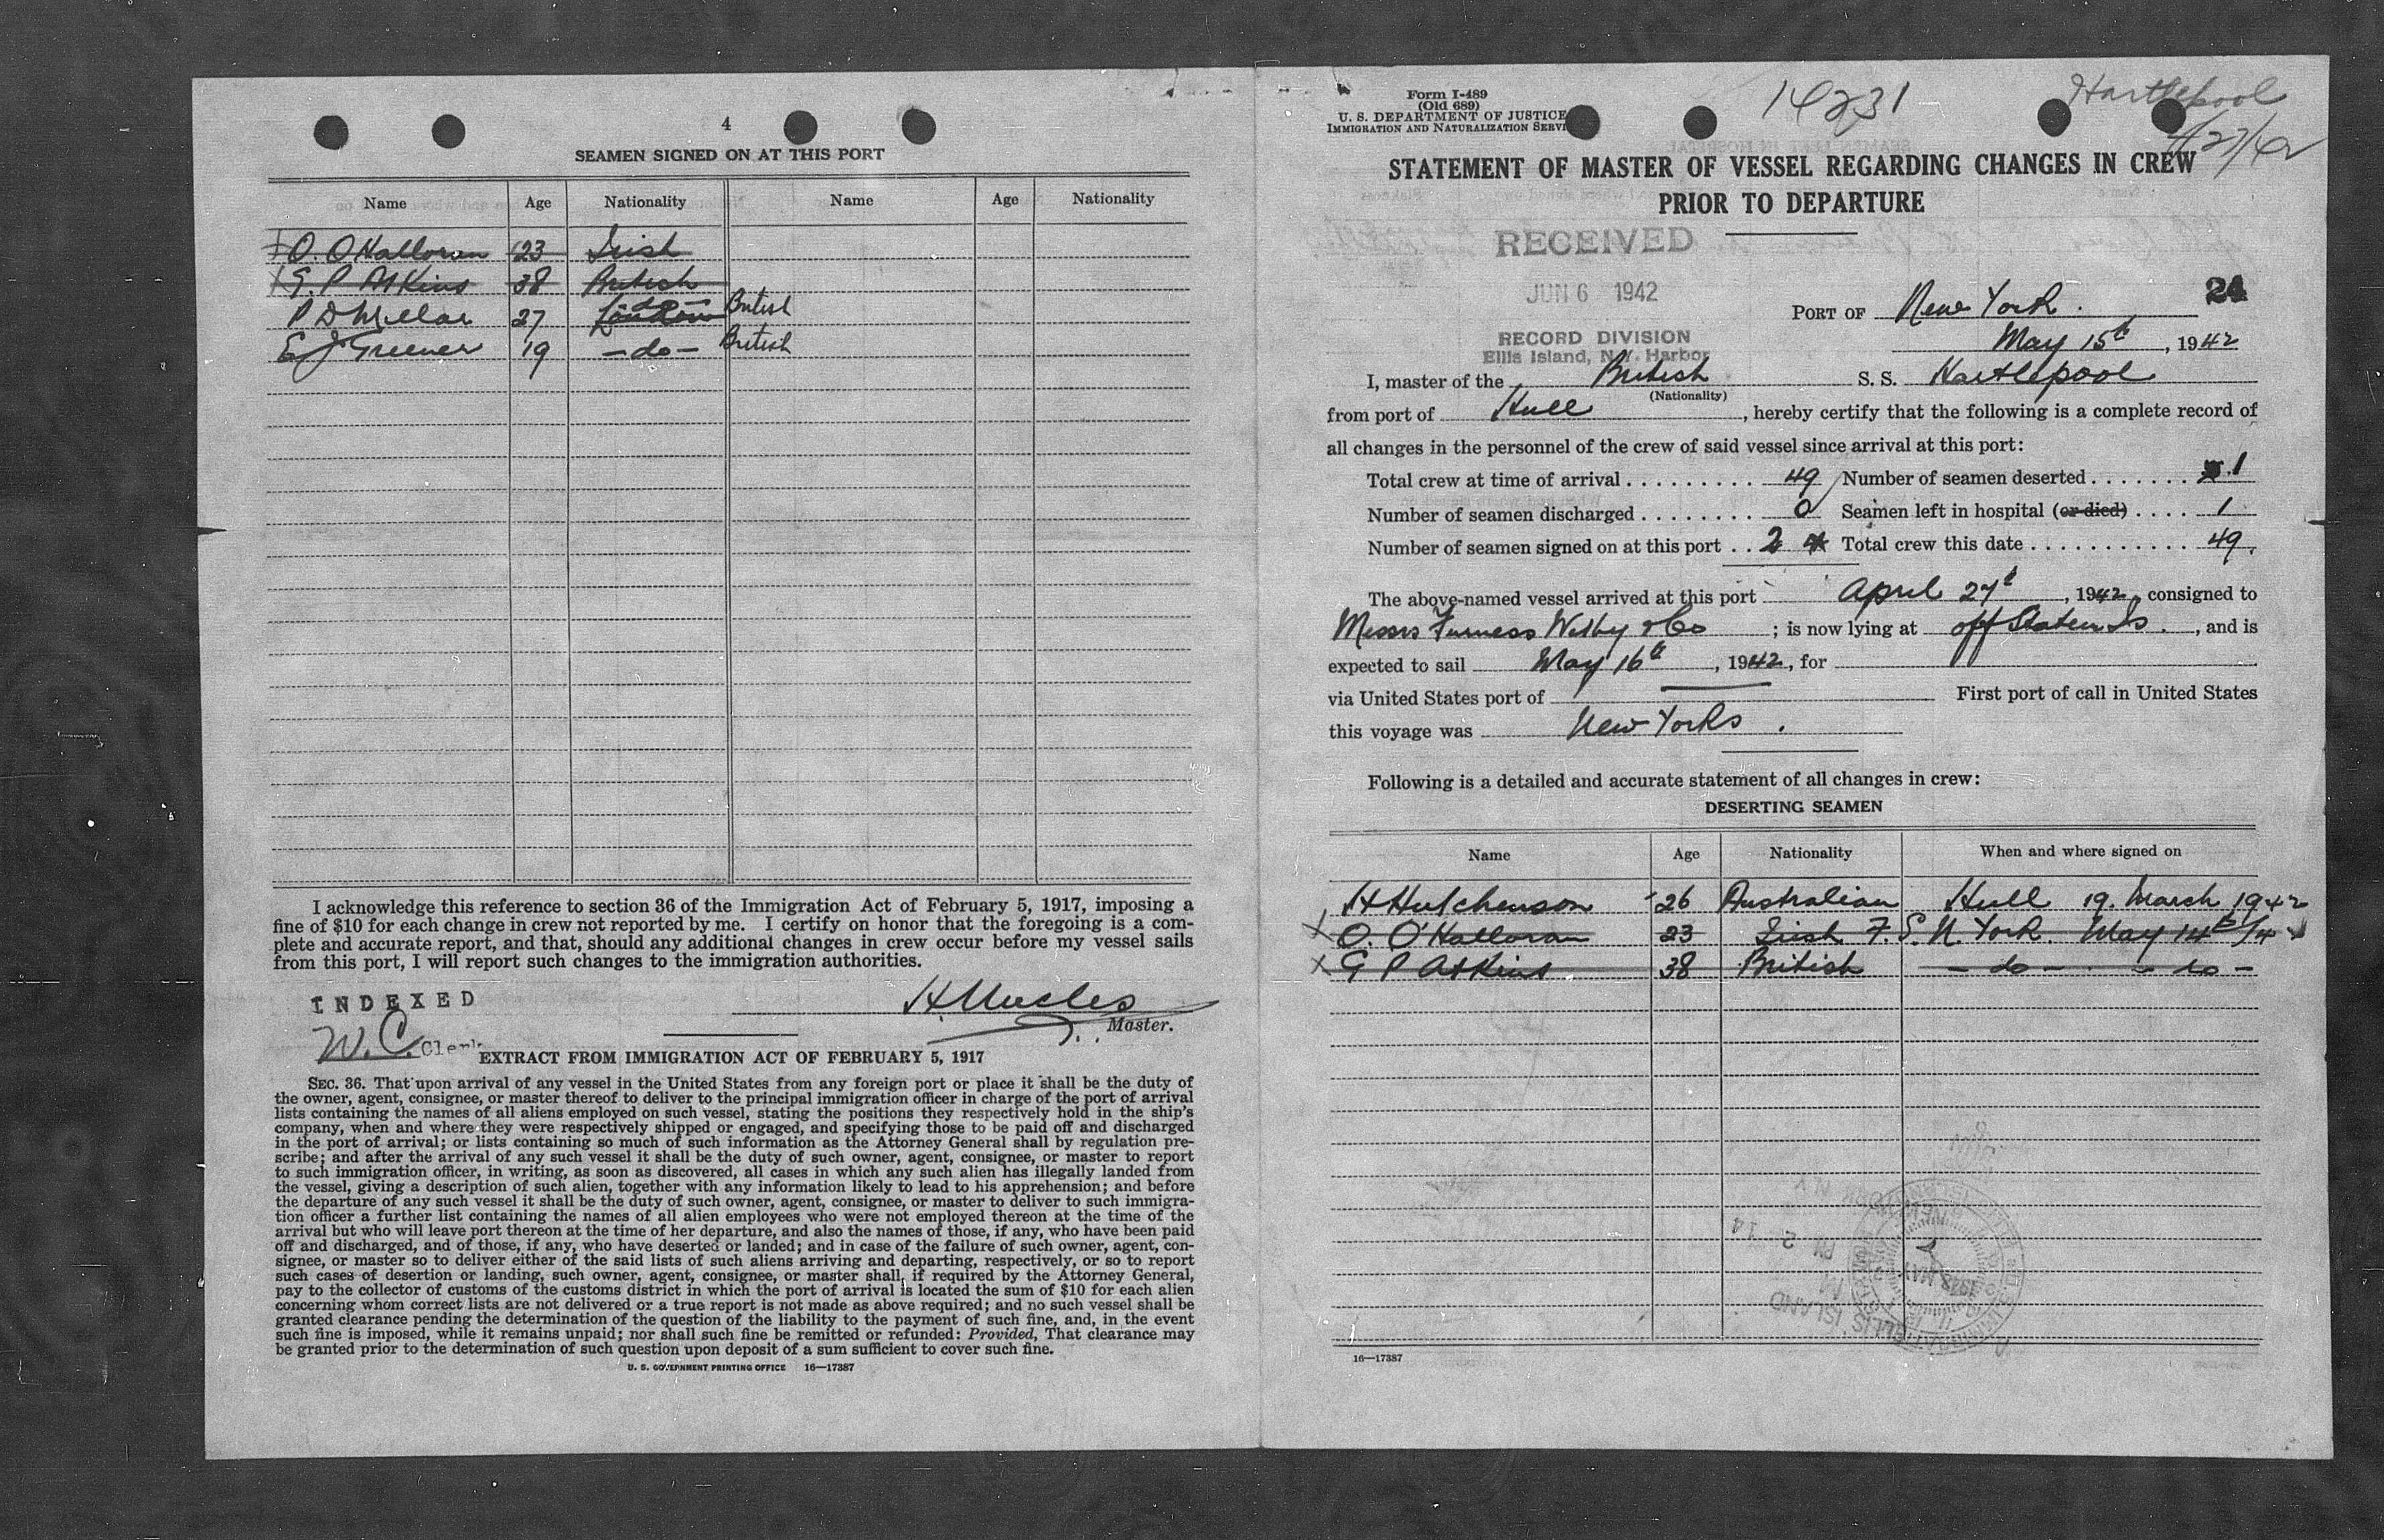 4
SEAMEN SIGNED ON AT THIS PORT
Name Age Nationality Name Age Nationality
O. O'Halloran 23 Irish
G. P. Atkins 38 British
P D Millar 27 London -do- British
E J Greener 19 -do- British
I acknowledge this reference to section 36 of the Immigration Act of February 5, 1917, imposing a
fine of $10 for each change in crew not reported by me. I certify on honor that the foregoing is a com-
plete and accurate report, and that, should any additional changes in crew occur before my vessel sails
from this port, I will report such changes to the immigration authorities.
INDEXED
W. C. Clerk
Master.
EXTRACT FROM IMMIGRATION ACT OF FEBRUARY 5, 1917
SEC. 36. That upon arrival of any vessel in the United States from any foreign port or place it shall be the duty of
the owner, agent, consignee, or master thereof to deliver to the principal immigration officer in charge of the port of arrival
lists containing the names of all aliens employed on such vessel, stating the positions they respectively hold in the ship's
company, when and where they were respectively shipped or engaged, and specifying those to be paid off and discharged
in the port of arrival; or lists containing so much of such information as the Attorney General shall by regulation pre-
scribe; and after the arrival of any such vessel it shall be the duty of such owner, agent, consignee, or master to report
to such immigration officer, in writing, as soon as discovered, all cases in which any such alien has illegally landed from
the vessel, giving a description of such alien, together with any information likely to lead to his apprehension; and before
the departure of any such vessel it shall be the duty of such owner, agent, consignee, or master to deliver to such immigra-
tion officer a further list containing the names of all alien employees who were not employed thereon at the time of the
arrival but who will leave port thereon at the time of her departure, and also the names of those, if any, who have been paid
off and discharged, and of those, if any, who have deserted or landed; and in case of the failure of such owner, agent, con-
signee, or master so to deliver either of the said lists of such aliens arriving and departing, respectively, or so to report
such cases of desertion or landing, such owner, agent, consignee, or master shall, if required by the Attorney General,
pay to the collector of customs of the customs district in which the port of arrival is located the sum of $10 for each alien
concerning whom correct lists are not delivered or a true report is not made as above required; and no such vessel shall be
granted clearance pending the determination of the question of the liability to the payment of such fine, and, in the event
such fine is imposed, while it remains unpaid; nor shall such fine be remitted or refunded: Provided, That clearance may
be granted prior to the determination of such question upon deposit of a sum sufficient to cover such fine.
U. S. GOVERNMENT PRINTING OFFICE 16—17387
Form I-489
(Old 689)
U. S. DEPARTMENT OF JUSTICE
IMMIGRATION AND NATURALIZATION SERVI
14231
Hartlepool
4/27/42
STATEMENT OF MASTER OF VESSEL REGARDING CHANGES IN CREW
PRIOR TO DEPARTURE
RECEIVED
JUN 6 1942
RECORD DIVISION
Ellis Island, N.Y. Harbor
24
PORT OF New York.
May 15th, 1942
I, master of the British S. S. Hartlepool
(Nationality)
from port of Hull, hereby certify that the following is a complete record of
all changes in the personnel of the crew of said vessel since arrival at this port:
Total crew at time of arrival . . . . . . . . . 49 Number of seamen deserted . . . . . . . 1
Number of seamen discharged . . . . . . . . 0 Seamen left in hospital (or died) . . . . 1
Number of seamen signed on at this port . . 2 Total crew this date . . . . . . . . . . . . 49.
The above-named vessel arrived at this port April 27th, 1942, consigned to
Messrs Furness Withy & Co; is now lying at off Staten Is., and is
expected to sail May 16th, 1942, for
via United States port of First port of call in United States
this voyage was New York.
Following is a detailed and accurate statement of all changes in crew:
DESERTING SEAMEN
Name Age Nationality When and where signed on
H Hutchenson 26 Australian Hull 19. March 1942
O. O'Halloran 23 Irish F.S. N. York. May 14th/42
G P Atkins 38 British -do- -do-
16—17387